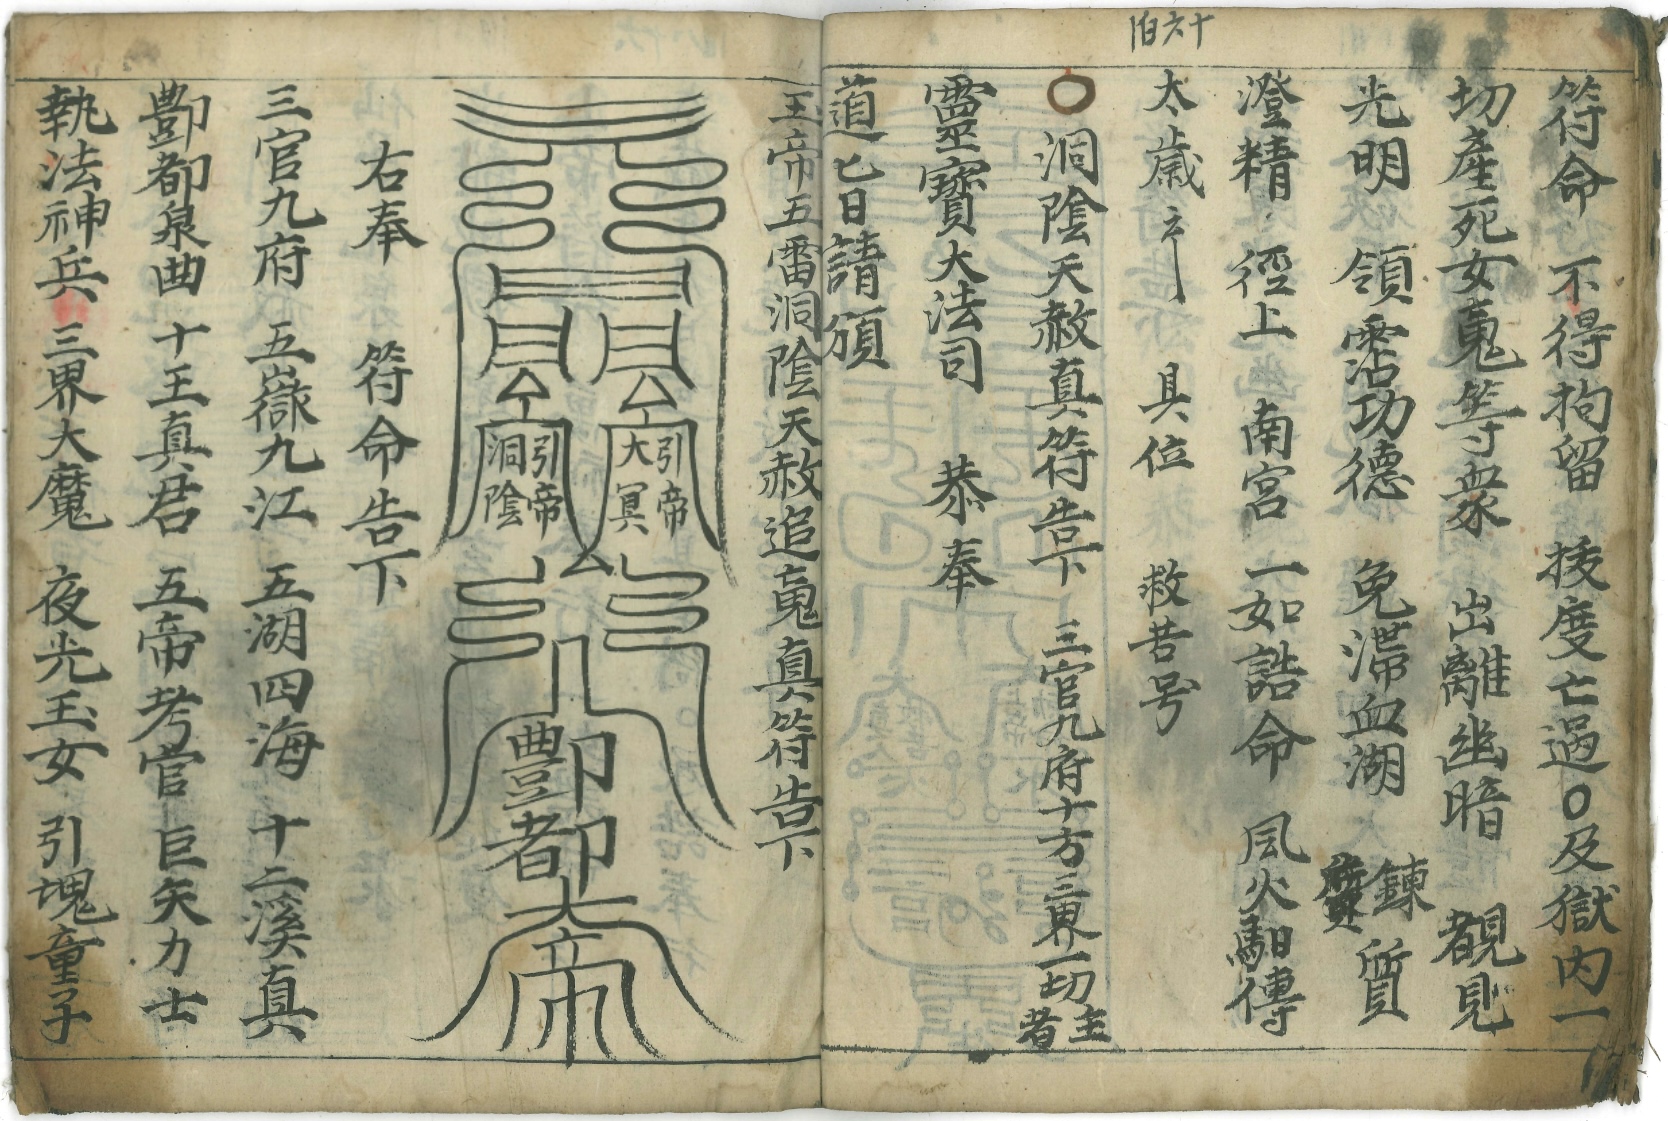 十六自
符命 不得拘留 拔度亡過〇及獄內一
切產死女䰟等衆 出離幽暗 覩見
光明 領霑功德 免滯血湖 鍊質
澄精 徑上 南宮 一如誥命 風火馹傳
太歲 具位 救苦号
〇 洞陰天赦真符告下 三官九府十方三界一切主者
靈寶大法司 恭奉
道 乜日請頒
玉帝五雷洞陰天赦追䰟真符告下
引帝大冥
引帝洞陰
酆都大帝
右奉 符命告下
三官九府 五嶽九江 五湖四海 十二溪真
酆都泉曲 十王真君 五帝考官 巨矢力士
執法神兵 三界大魔 夜光玉女 引魂童子